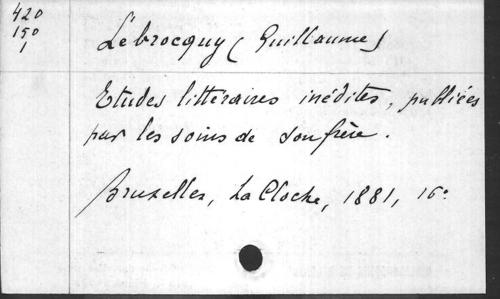 420
150
1
Lebrocquy (Guillaume)
Etudes littéraires inédites, publiées
par les soins de son frère.
Bruxelles, La Cloche, 1881, 16°